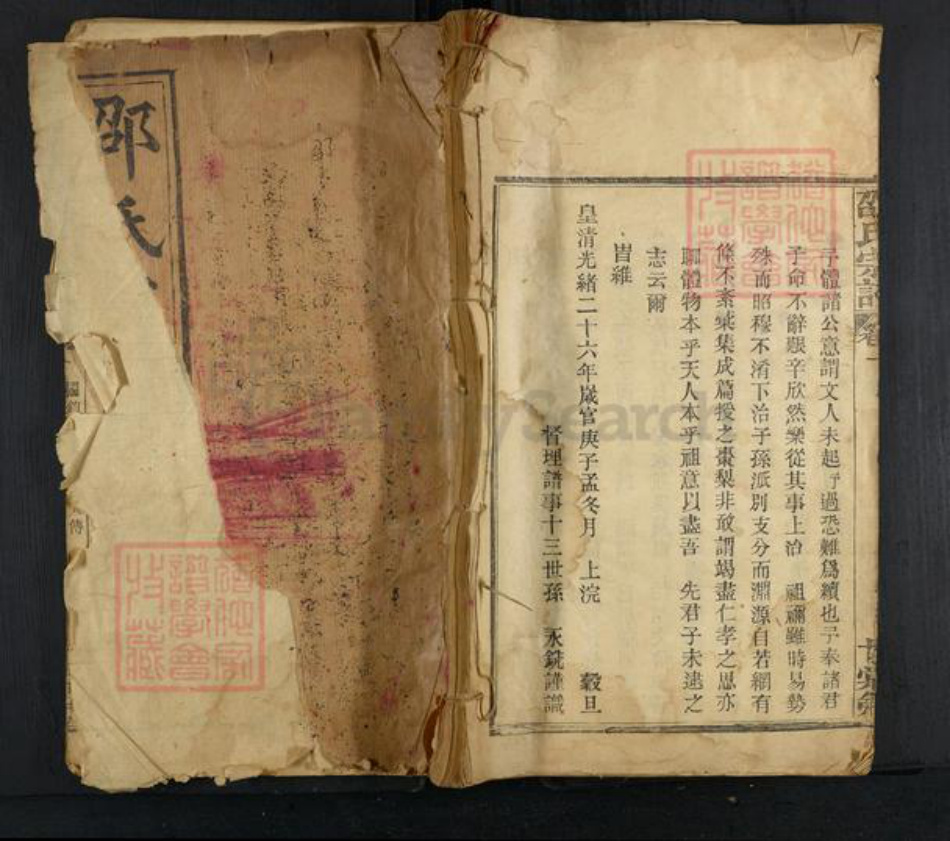 邵氏宗譜 卷一
子體諸公意謂文人未起予過恐難爲續也予奉諸君
子命不辭艱辛欣然樂從其事上治 祖禰雖時易勢
殊而昭穆不淆下治子孫派別支分而淵源自若綱有
條不紊彙集成篇授之棗梨非敢謂竭盡仁孝之思亦
聊體物本乎天人本乎祖意以盡吾 先君子未逮之
志云爾
旹維
皇清光緒二十六年歲官庚子孟冬月 上浣 穀旦
督理譜事十三世孫 永銑謹識
邵氏
傳
FamilySearch